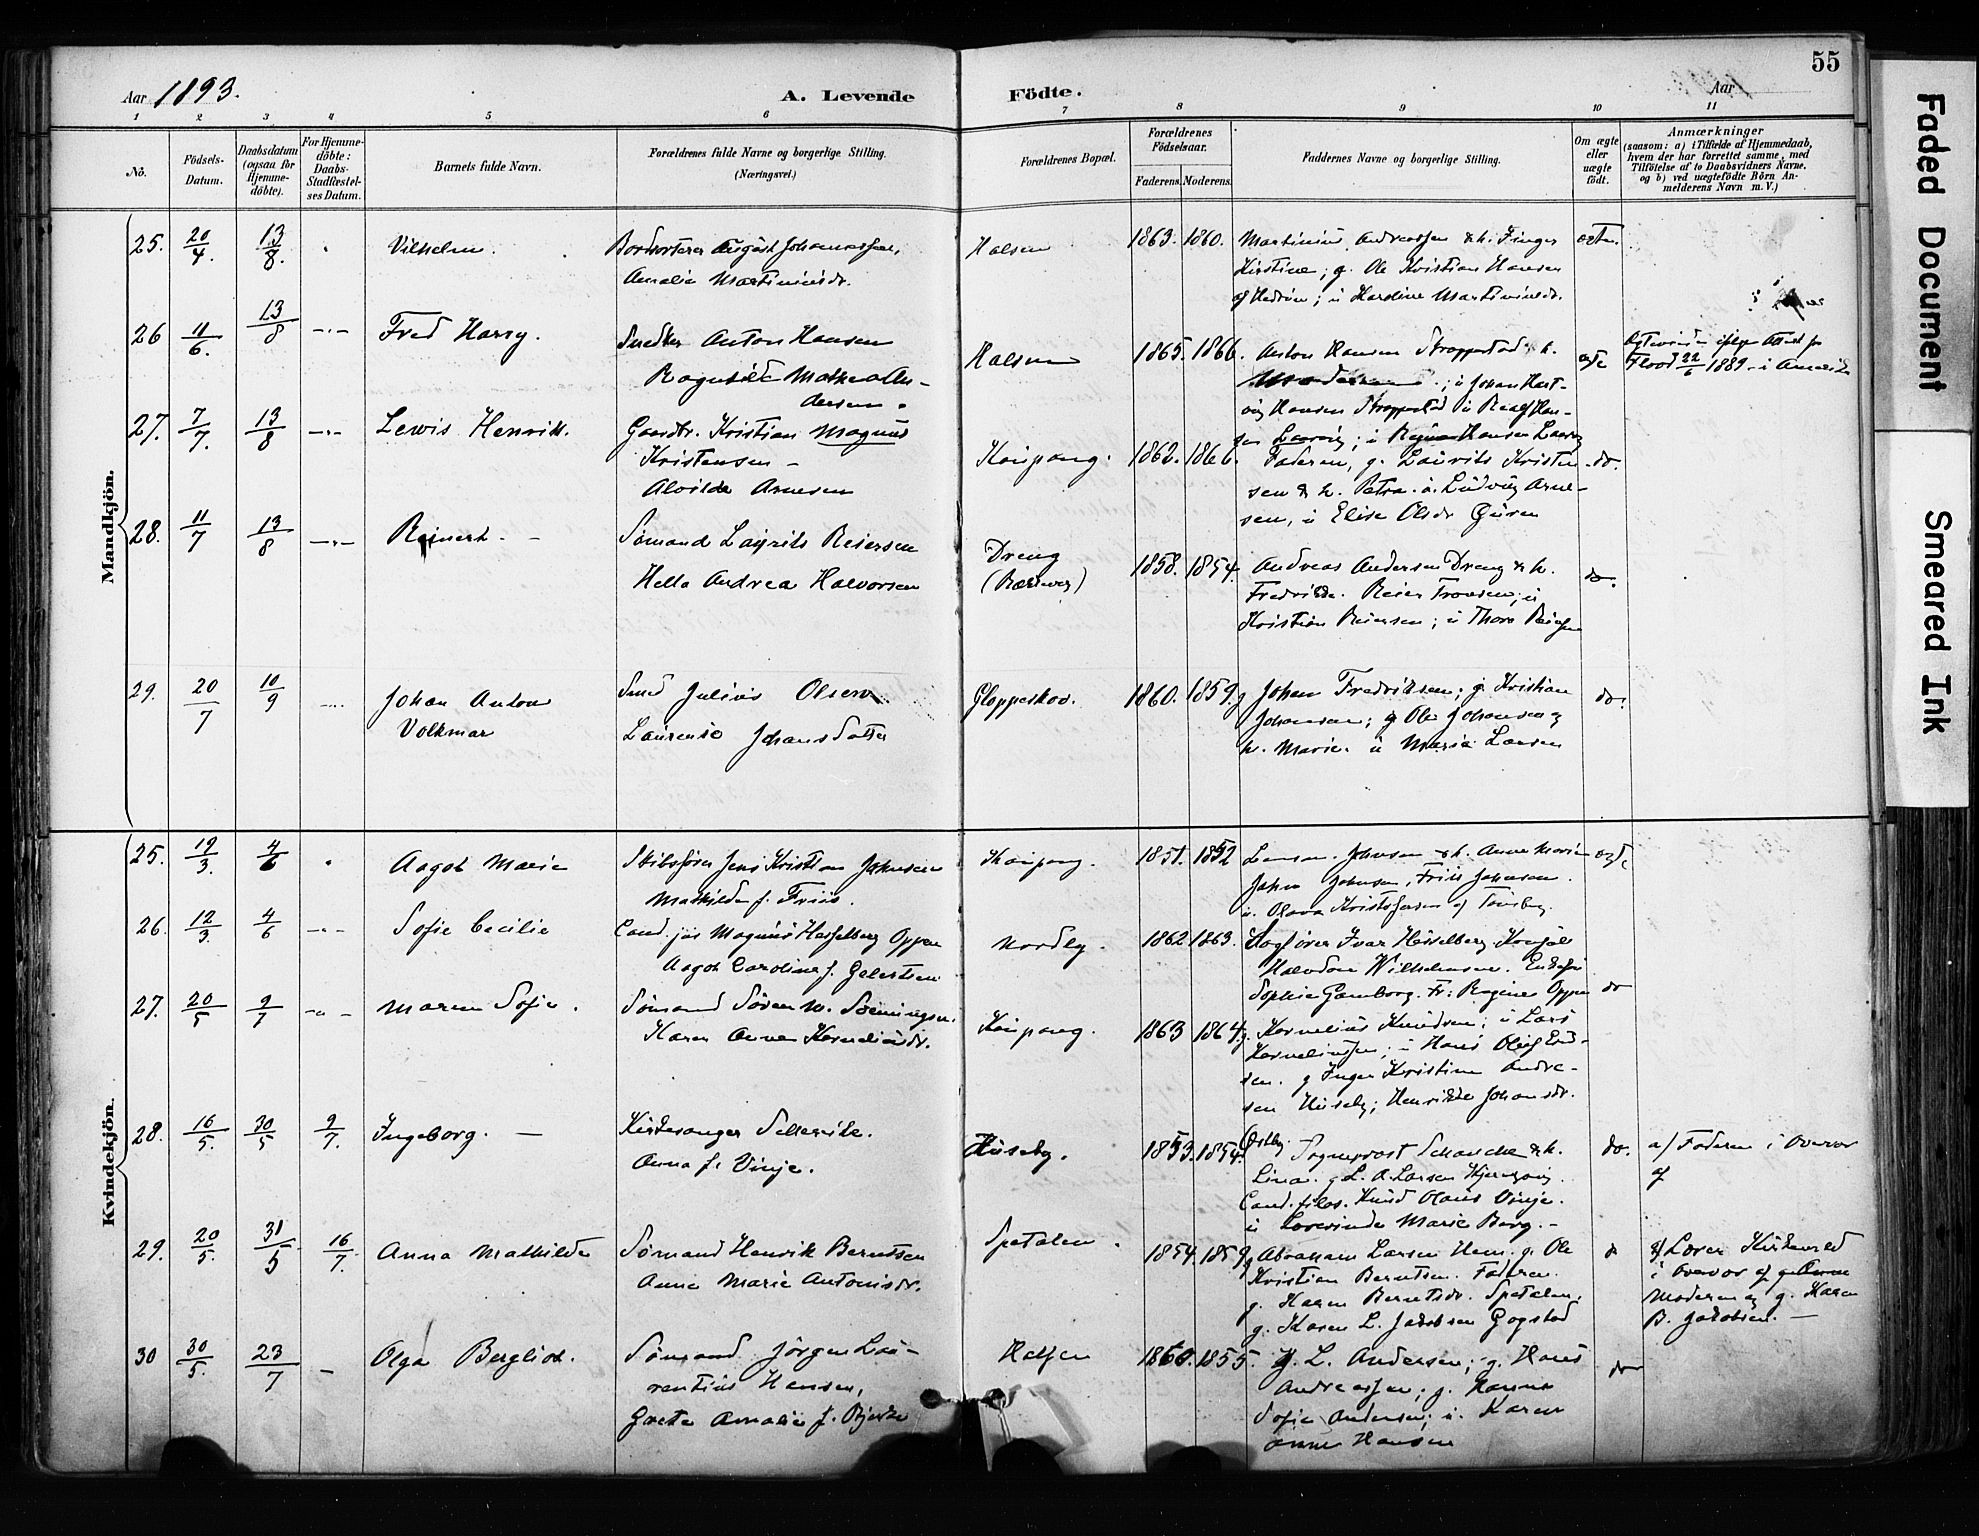 55
Aar 1893.
A. Levende
Födte.
Aar
1 2 3 4 5 6 7 8 9 10 11
No.
Födsels-
Datum.
Daabsdatum
(ogsaa for
Hjemme-
döbte).
For Hjemme-
döbte:
Daabs-
Stadfæstel-
ses Datum.
Barnets fulde Navn.
Forældrenes fulde Navne og borgerlige Stilling.
(Næringsvei.)
Forældrenes Bopæl.
Forældrenes
Födselsaar.
Faderens. Moderens.
Faddernes Navne og borgerlige Stilling.
Om ægte
eller
uægte
födt.
Anmærkninger
(saasom: a) i Tilfælde af Hjemmedaab,
hvem der har forrettet samme, med
Tilföielse af to Daabsvidners Navne.
og b) ved uægtefödte Börn An-
melderens Navn m. V.)
Mandkjön.
25. 20/4. 13/8. Vilhelm.
August Johannessen,
Amalie Martinusdr.
Halsen 1863. 1860.
Martinius Andreassen & h. Inger
Kirstine; g. Ole Kristian Hansen
af Hedrum; u Hardine Martinusdr.
26 11/6. 13/8 Fred Harry.
Snedker Anton Hansen
Ragnhild Mathea An-
dersen.
Halsen 1865. 1866.
Anton Hansen & h.
; u Johan Hart-
vig Hansen
sen Laurvig; u Hansen Laurvig
ægte
Attest fra
Flood 22/6 1889 i Amerika
27. 7/7. 13/8 Lewis Henrik.
Gaardbr. Kristian Magnus
Kristensen –
Alvilda Arnesen
Kaupang. 1862. 1866.
Faderen, g. Laurits Kristen-
sen & h. Petra. u. Ludvig Arne-
sen, u Elise Olsdr
do.
28. 11/7 13/8 Reinert
Sømand Laurits Reiersen
Hella Andrea Halvorsen
Dreng
1858. 1854.
Andreas Andersen Dreng & h.
Fredrikke. Reier Tronsen; u
Kristian Reiersen; u Thora
do.
29. 20/7 10/9 Johan Anton
Volkmar
Smed Julius Olsen
Laurense Johansdatter
Gloppeskov. 1860. 1859.
g Johan Fredriksen; g. Kristian
Johansen; g Ole Johansen &
h. Marie. u Maria Larsen
do.
Kvindekjön.
25. 19/3. 4/6 Aagot Marie
Skibsfører Jens Kristian Johnsen
Mathilde f. Friis.
Kaupang. 1851. 1852
Johnsen & h. Anne Marie
John Johnsen, Friis Johnsen.
u. Olava Kristofersen af Tønsberg.
ægte
26. 12/3. 4/6 Sofie Cecilie
Cand. jur Magnus Hesselberg Oppen
Aagot Caroline f. Gulestien
Nordby. 1862 1863.
Sagfører Ivar Hesselberg. Konsul
Halvdan Wilhelmsen. Enkefru
Sophie Gamborg. Fr: Ragina Oppen
do
27. 20/5 9/7 Maren Sofie.
Sømand Søren M.
Karen Anne Korneliusdr.
Kaupang. 1863 1864.
g. Kornelius Knudsen; u Lars
Korneliussen; u Hans Oluf
sen. g Inger Kristine Andre-
sen Huseby; Henrikke Johansdr.
28. 16/5. 30/5 9/7. Ingeborg. –
Kirkesanger
Anna f. Vinje.
Huseby. 1853. 1854.
Østby.
Sogneprost Schanche & h.
Lina. g L. A. Larsen
Cand. filos. Knud Olaus Vinje.
u Lovevinda Marie Berg. –
do.
a/ Faderen i Overvær
af
29. 20/5. 31/5 16/7. Anna Mathilde
Sømand Henrik Berntsen
Anne Marie Antonisdr.
Spetalen. 1854. 1859.
g Abraham Larsen Hem. g. Ole
Kristian Berntsen. Faderen.
g. Karen Berntsdr. Spetalen,
g. Karen L. Jakobsen Gogstad
a/ Lærer
i Overvær af
Moderen og g. Karen
B. Jakobsen. –
30 30/5. 23/7 Olga Bergliot.
Sømand Jørgen Lau-
rentius Hansen,
Grete Amalie f. Bjerke
Halsen 1860. 1855.
g. L. Andersen; g. Hans
Andreassen; g. Hanna
Sofie Andersen; u. Karen
Anne Hansen
do
Faded Document
Smeared Ink